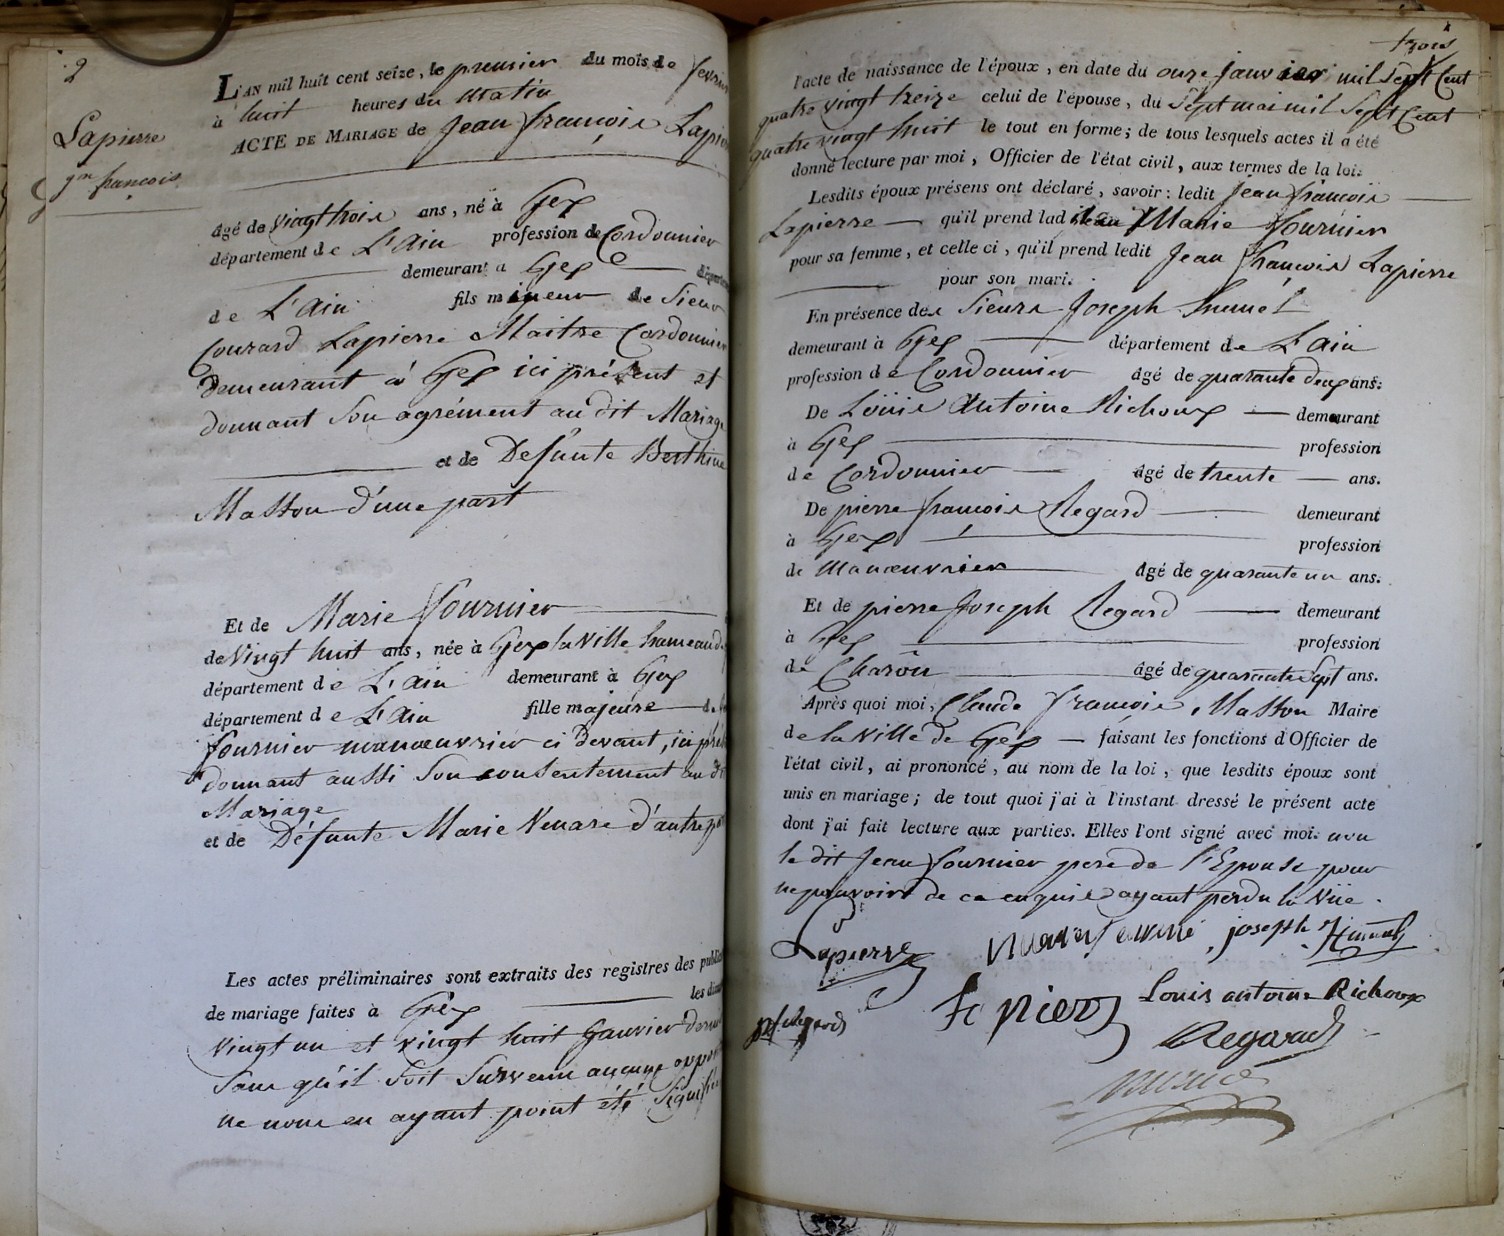 2
Lapierre
jn françois
L'an mil huit cent seize, le premier du mois de fevrier
à huit heures du matin
ACTE DE MARIAGE de Jean françois Lapierre
âgé de vingt trois ans, né à Gex
département de L'Ain profession de Cordonnier
demeurant à Gex département
de L'Ain fils mineur de Sieur
Conrard Lapierre Maitre Cordonnier
Demeurant à Gex ici présent et
donnant son agrément au dit Mariage
et de Defunte Berthine
Masson d'une part
Et de Marie fournier
de vingt huit ans, née à Gex la ville hameau de
département de L'Ain demeurant à Gex
département de L'Ain fille majeure de
fournier manœuvrier ci devant, ici
donnant aussi son consentement au dt
Mariage
et de Défunte Marie Venare d'autre
Les actes préliminaires sont extraits des registres des
de mariage faites à Gex les
vingt un et vingt huit Janvier
sans qu'il soit survenu aucune
ne nous en ayant point été
trois
l'acte de naissance de l'époux, en date du onze janvier mil sept cent
quatre vingt treize celui de l'épouse, du sept mai mil sept cent
quatre vingt huit le tout en forme; de tous lesquels actes il a été
donné lecture par moi, Officier de l'état civil, aux termes de la loi.
Lesdits époux présens ont déclaré, savoir: ledit Jean françois
Lapierre qu'il prend lad Marie fournier
pour sa femme, et celle ci, qu'il prend ledit Jean françois Lapierre
pour son mari.
En présence des Sieurs Joseph
demeurant à Gex département de L'Ain
profession de Cordonnier âgé de quarante deux ans.
De Loüis Antoine Richoux demeurant
à Gex profession
de Cordonnier âgé de trente ans.
De pierre françois Regard demeurant
à Gex profession
de manœuvrier âgé de quarante un ans.
Et de pierre Joseph Regard demeurant
à Gex profession
de Charôn âgé de quarante sept ans.
Après quoi moi, Claude françois Masson Maire
de la ville de Gex faisant les fonctions d'Officier de
l'état civil, ai prononcé, au nom de la loi, que lesdits époux sont
unis en mariage; de tout quoi j'ai à l'instant dressé le présent acte
dont j'ai fait lecture aux parties. Elles l'ont signé avec moi. non
le dit Jean fournier pere de l'Epouse pour
ne pouvoir de ce enquis ayant perdu la vüe.
Lapierre joseph
Louis antoine Richoux
Regard